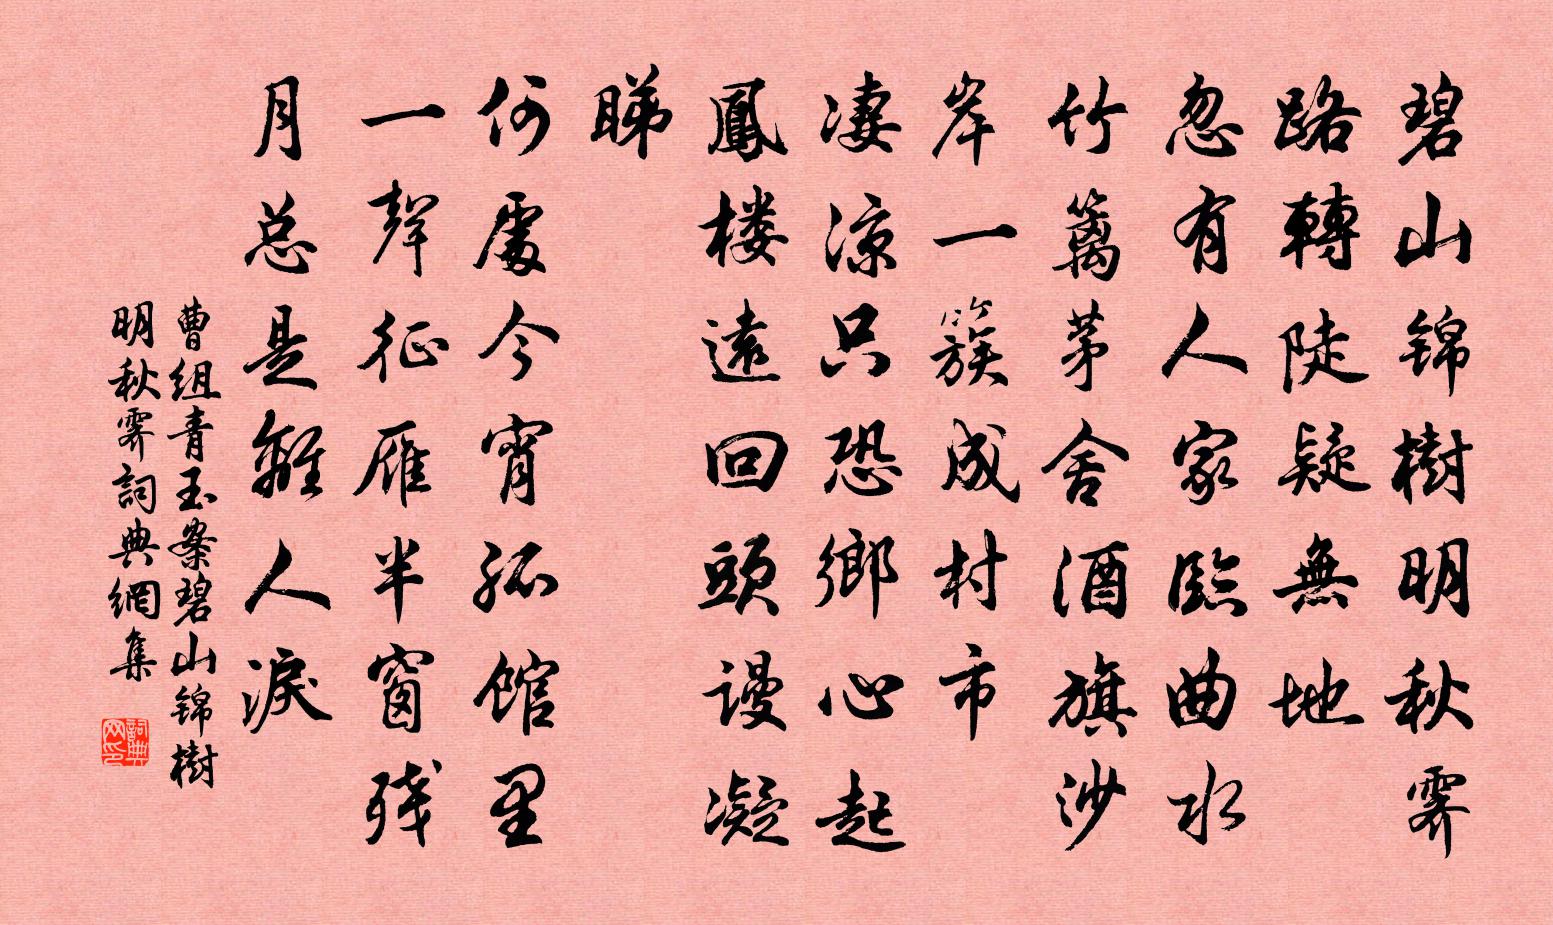 碧山锦樹明秋霁
路轉陡疑無地
忽有人家臨曲水
竹篱茅舍酒旗沙
岸一簇成村市
凄涼只恐鄉心起
鳳楼遠回頭谩凝
睇
何處今宵孤馆里
一聲征雁半窗残
月总是離人淚
曹组青玉案碧山锦樹
明秋霁詞典網集
詞典网印